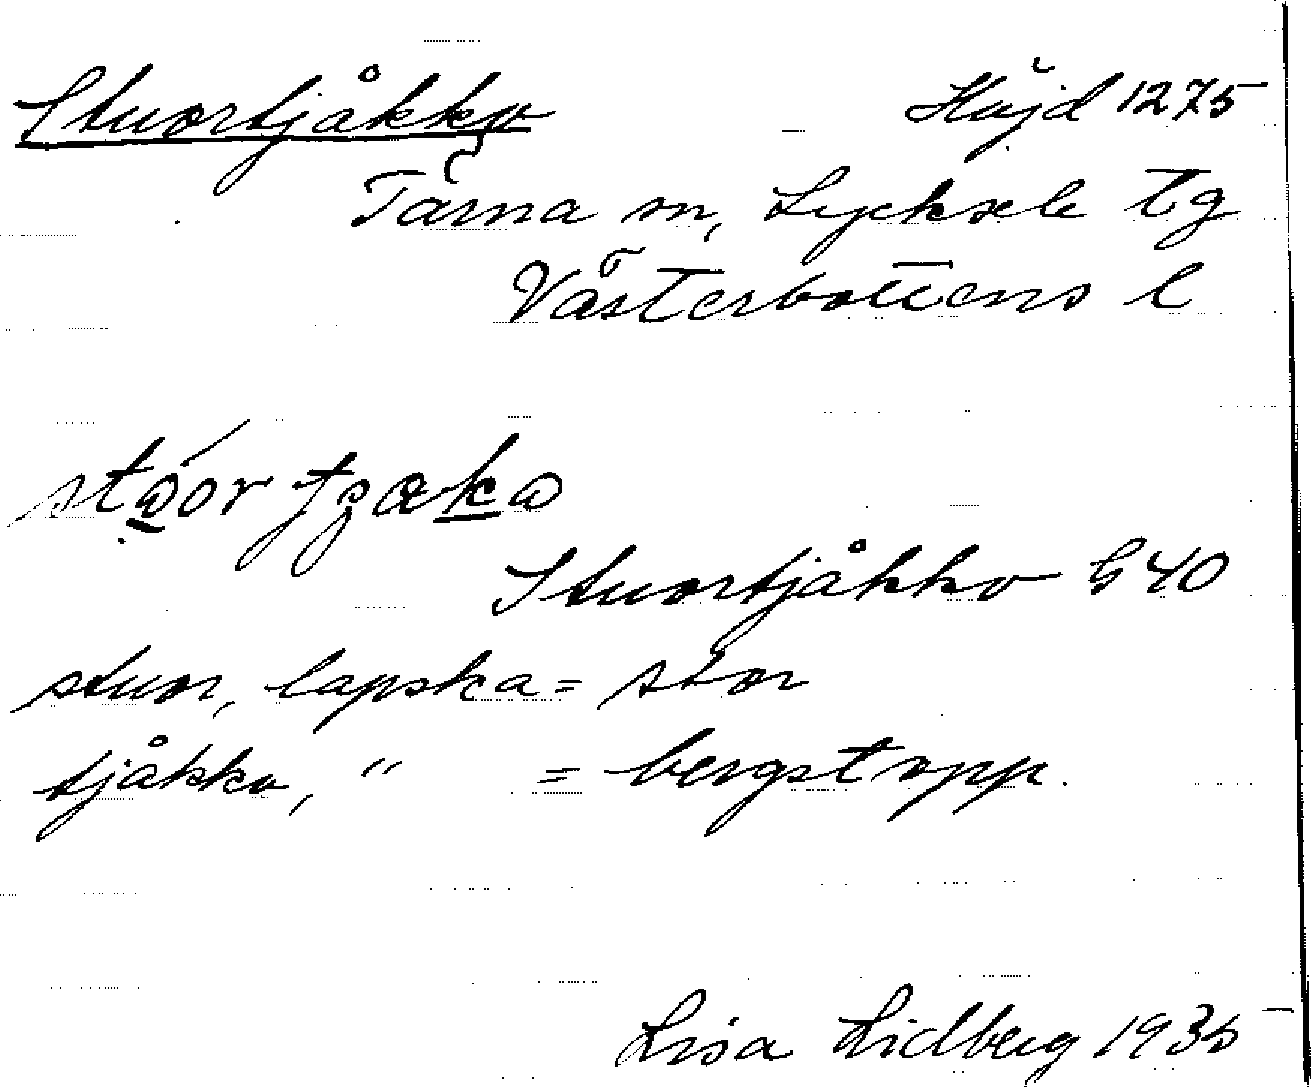 Stuortjåkko Höjd 1275
Tärna sn, Lycksele tg
Västerbottens l
Stuortjåkko G 40
stuor, lapska = stor
tjåkko, " = bergstopp.
Lisa Lidberg 1935